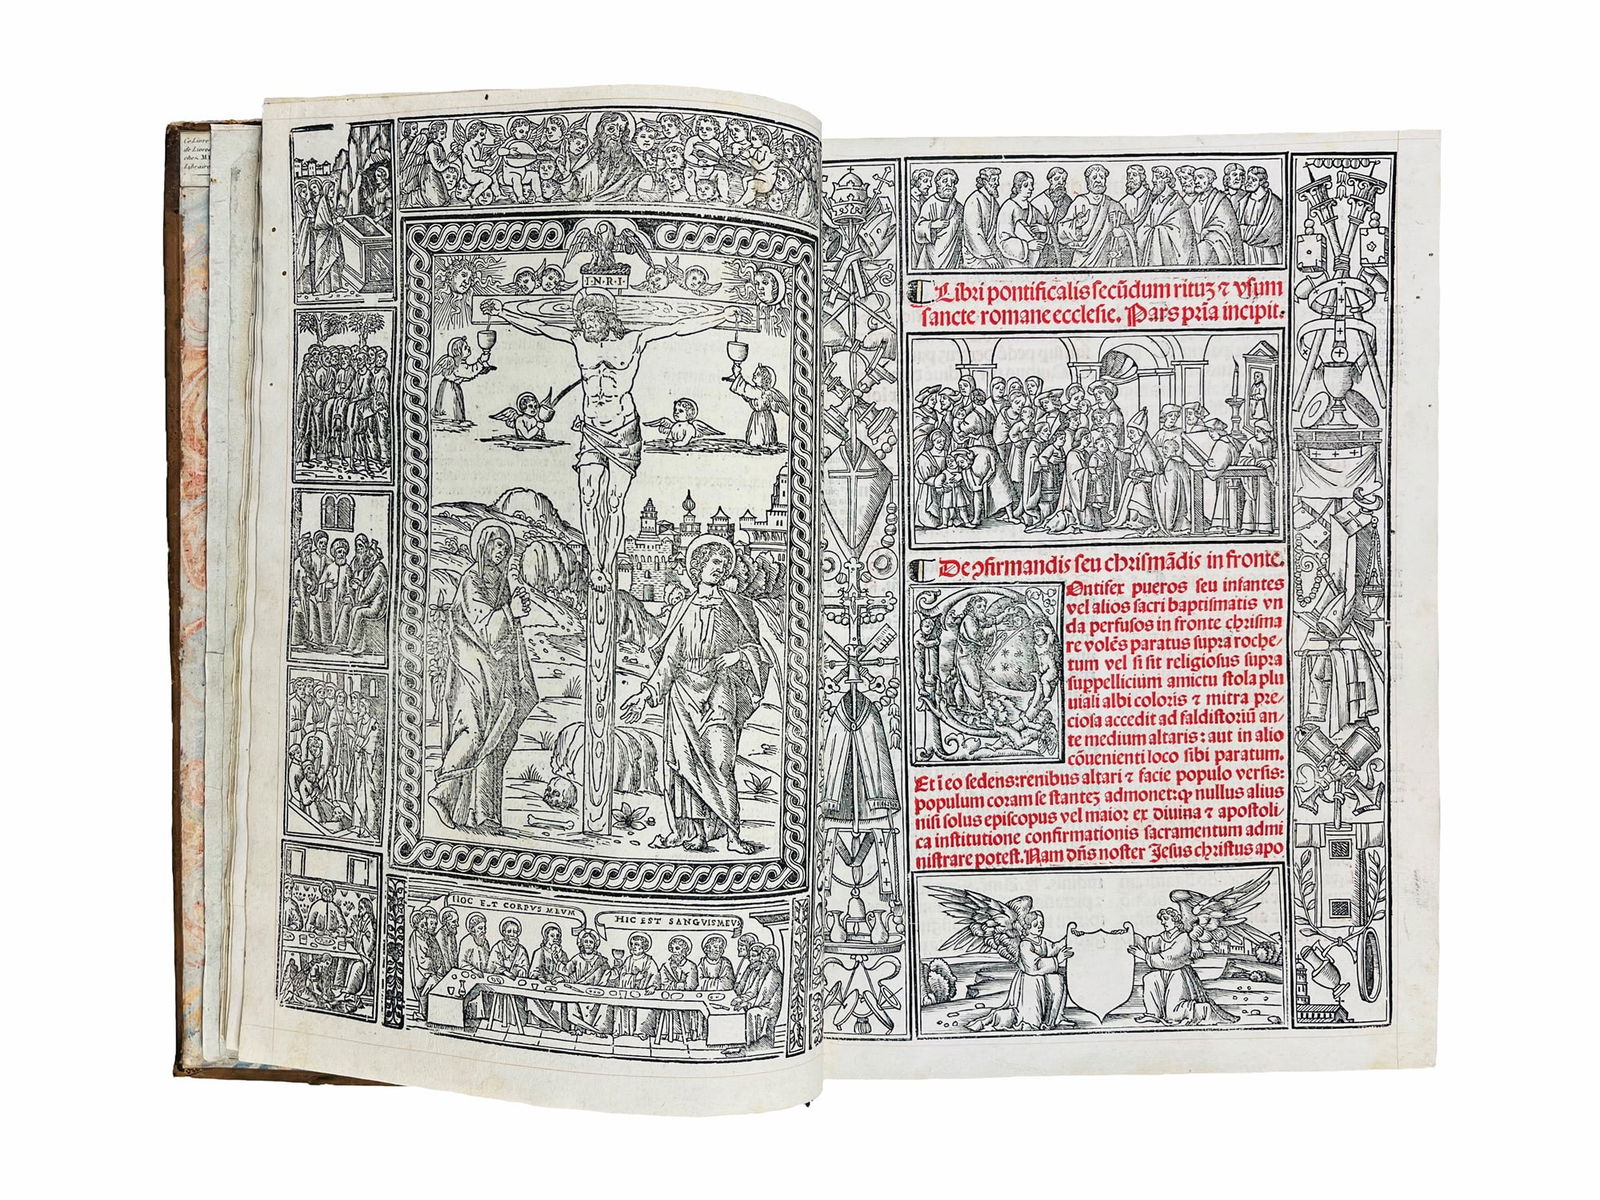 Ce Livre
de
chez M
Libraire
I·N·R·I·
HOC EST CORPVS MEVM
HIC EST SANGVIS MEVS
Libri pontificalis secūdum rituʒ ⁊ vsum
sancte romane ecclesie. Pars pria incipit.
De ꝯfirmandis seu chrismādis in fronte.
Pontifex pueros seu infantes
vel alios sacri baptismatis vn
da perfusos in fronte chrisma
re volēs paratus supra roche/
tum vel si sit religiosus supra
suppellicium amictu stola plu
uiali albi coloris ⁊ mitra pre/
ciosa accedit ad faldistoriū an/
te medium altaris: aut in alio
cōuenienti loco sibi paratum.
Et ī eo sedens: renibus altari ⁊ facie populo versis:
populum coram se stanteʒ admonet: ꝙ nullus alius
nisi solus episcopus vel maior ex diuina ⁊ apostoli/
ca institutione confirmationis sacramentum admi
nistrare potest. Nam dn̄s noster Jesus christus apo